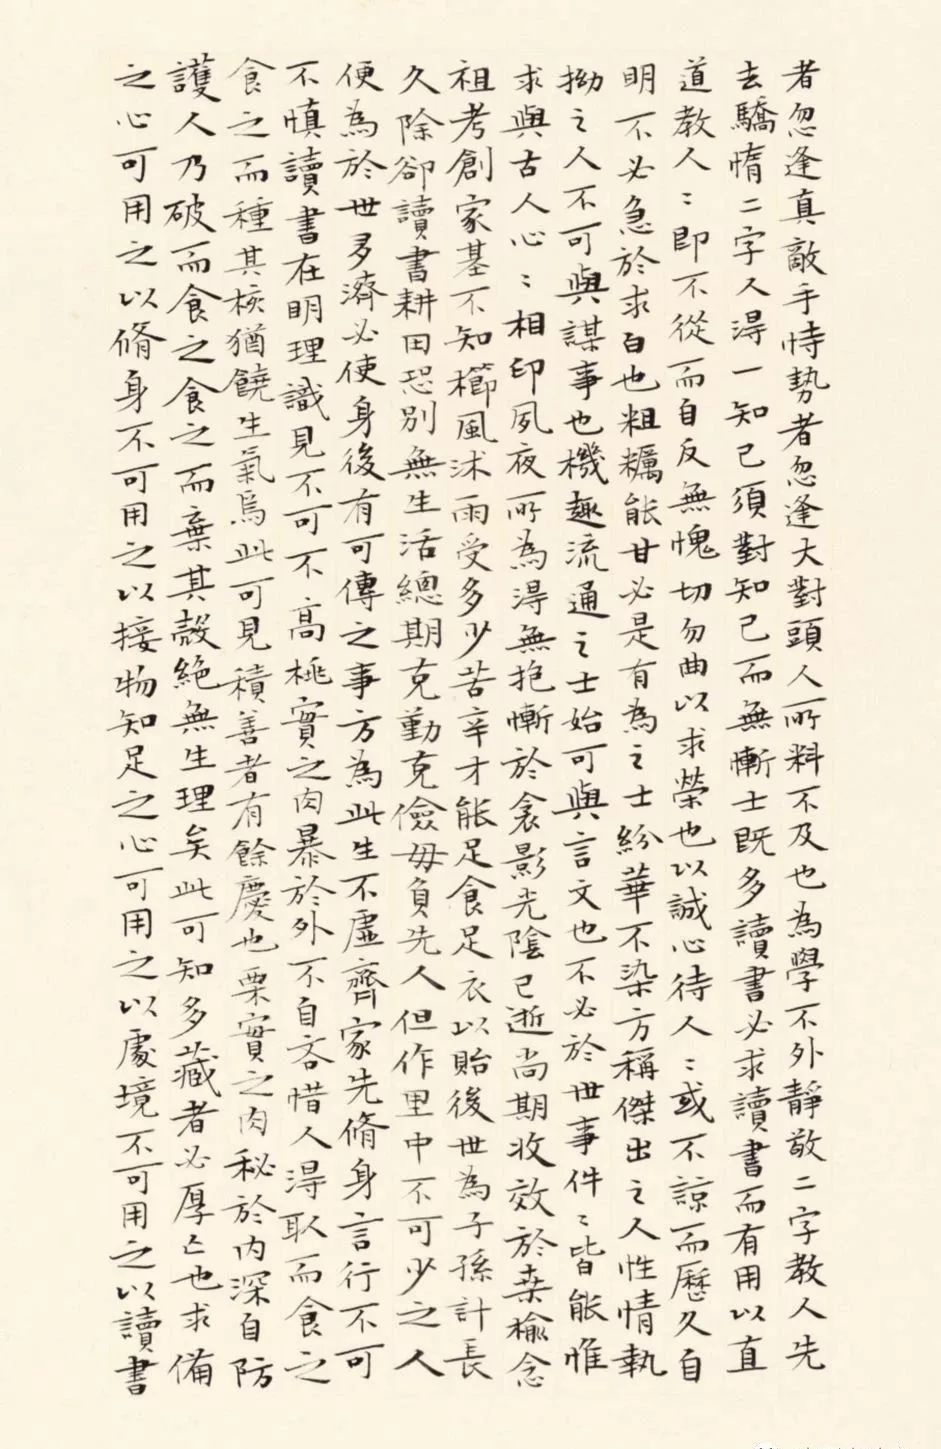 者忽逢真敵手恃勢者忽逢大對頭人所料不及也為學不外靜敬二字教人先
去驕惰二字人得一知己須對知己而無慚士既多讀書必求讀書而有用以直
道教人〻即不從而自反無愧切勿曲以求榮也以誠心待人〻或不諒而歷久自
明不必急於求白也粗糲能甘必是有為之士紛華不染方稱傑出之人性情執
拗之人不可與謀事也機趣流通之士始可與言文也不必於世事件〻皆能惟
求與古人心〻相印夙夜所為得無抱慚於衾影光陰已逝尚期收效於桑榆念
祖考創家基不知櫛風沭雨受多少苦辛才能足食足衣以貽後世為子孫計長
久除卻讀書耕田恐別無生活總期克勤克儉毋負先人但作里中不可少之人
便為於世多濟必使身後有可傳之事方為此生不虛齊家先脩身言行不可
不慎讀書在明理識見不可不高桃實之肉暴於外不自吝惜人得取而食之
食之而種其核猶饒生氣焉此可見積善者有餘慶也栗實之肉秘於內深自防
護人乃破而食之食之而棄其殼絕無生理矣此可知多藏者必厚亡也求備
之心可用之以脩身不可用之以接物知足之心可用之以處境不可用之以讀書